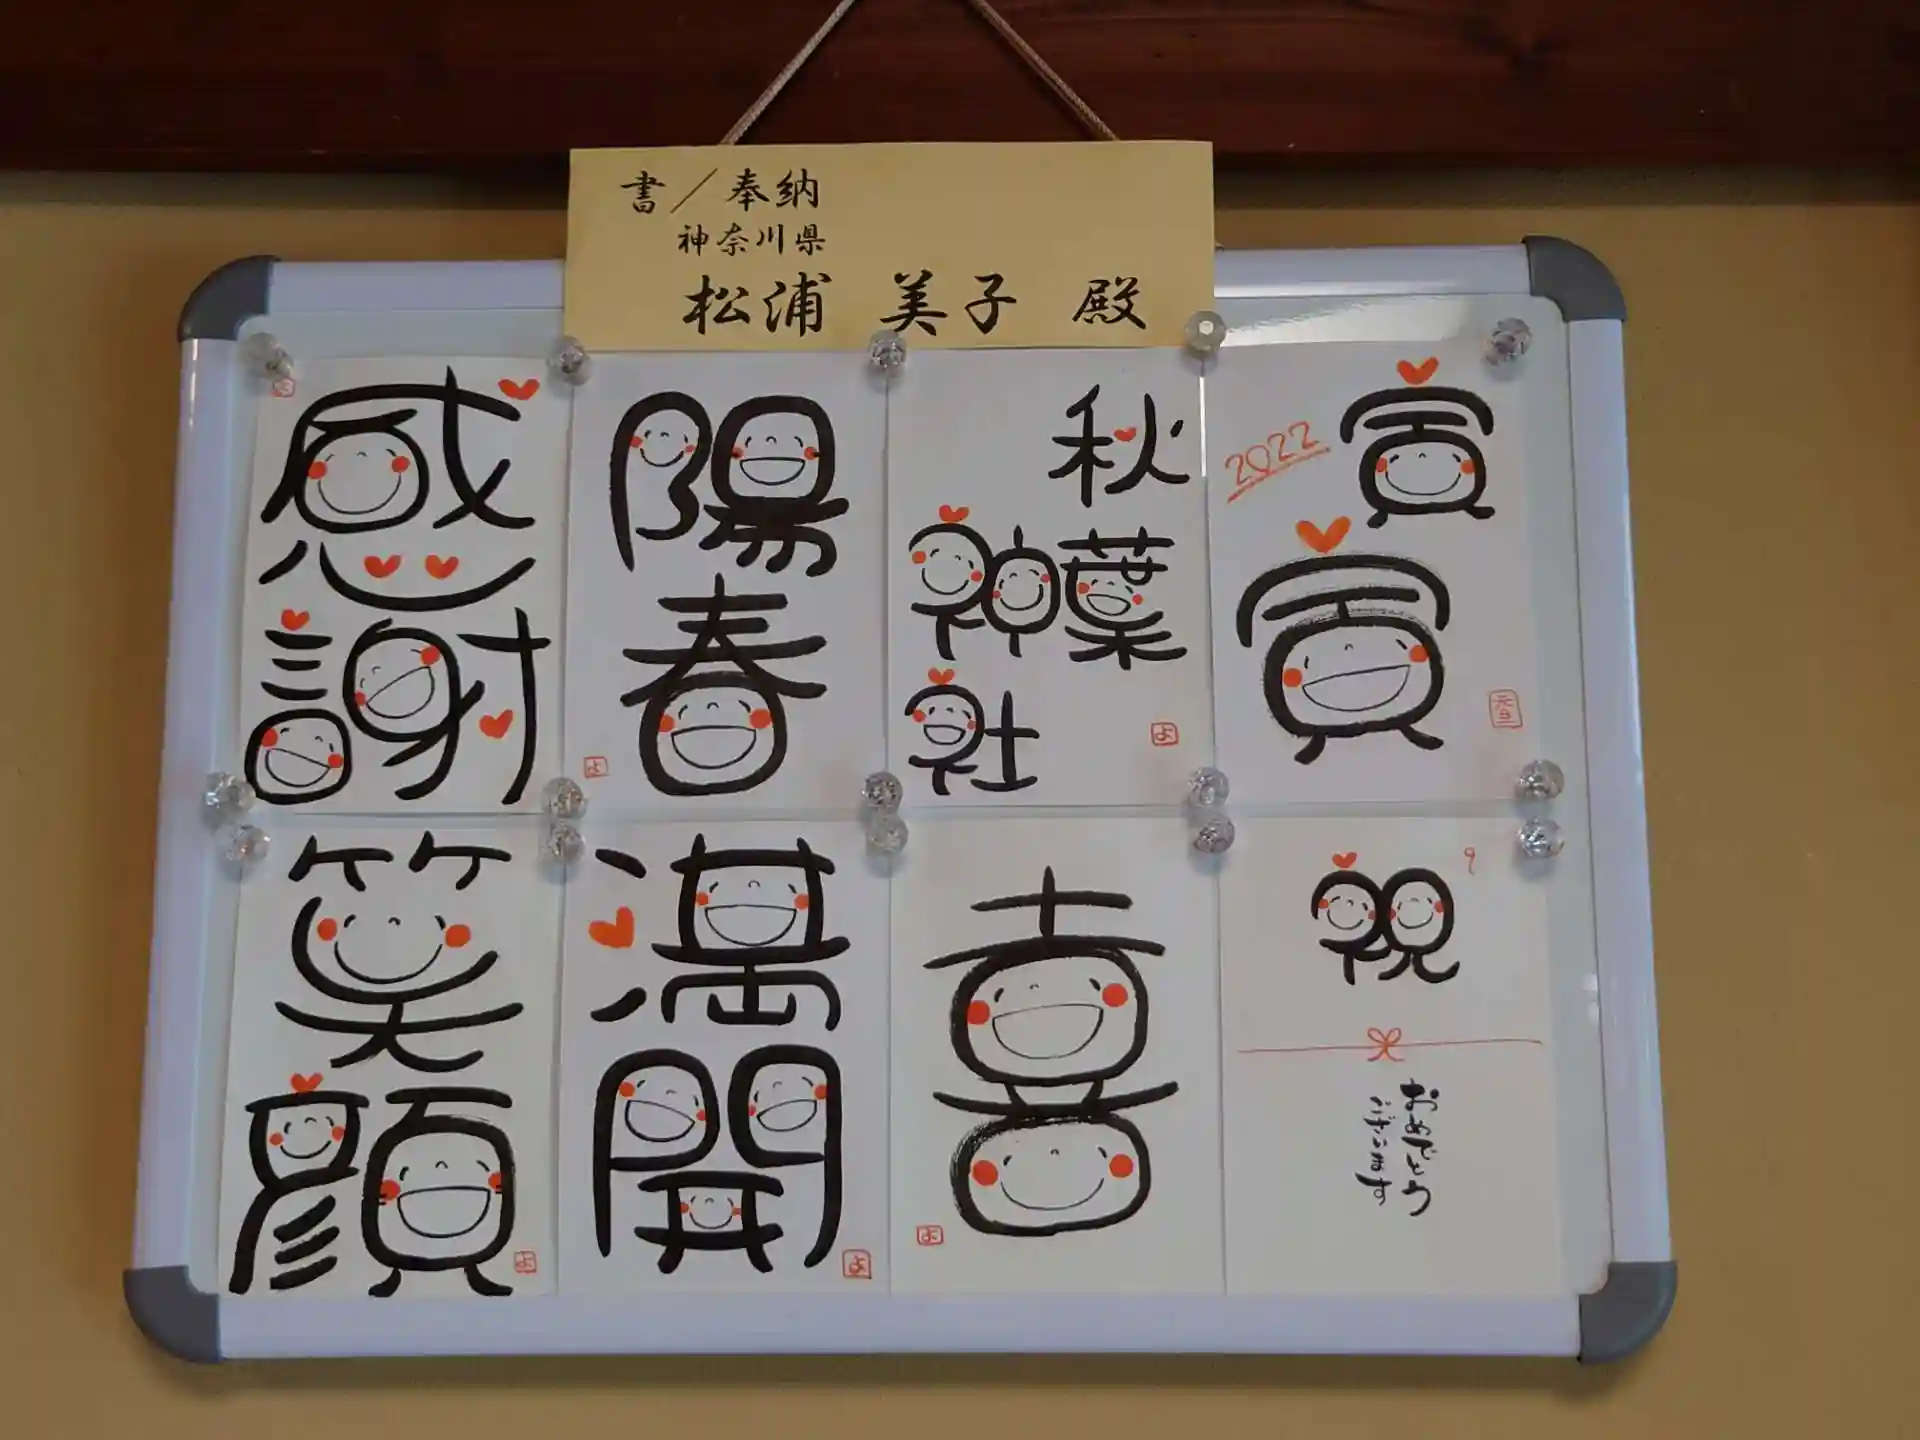 書／奉納
神奈川県
松浦 美子 殿
感謝
陽春
秋葉
神社
2022
寅
寅
元旦
笑顔
満開
喜
祝
おめでとう
ございます
よ
よ
よ
よ
よ
よ